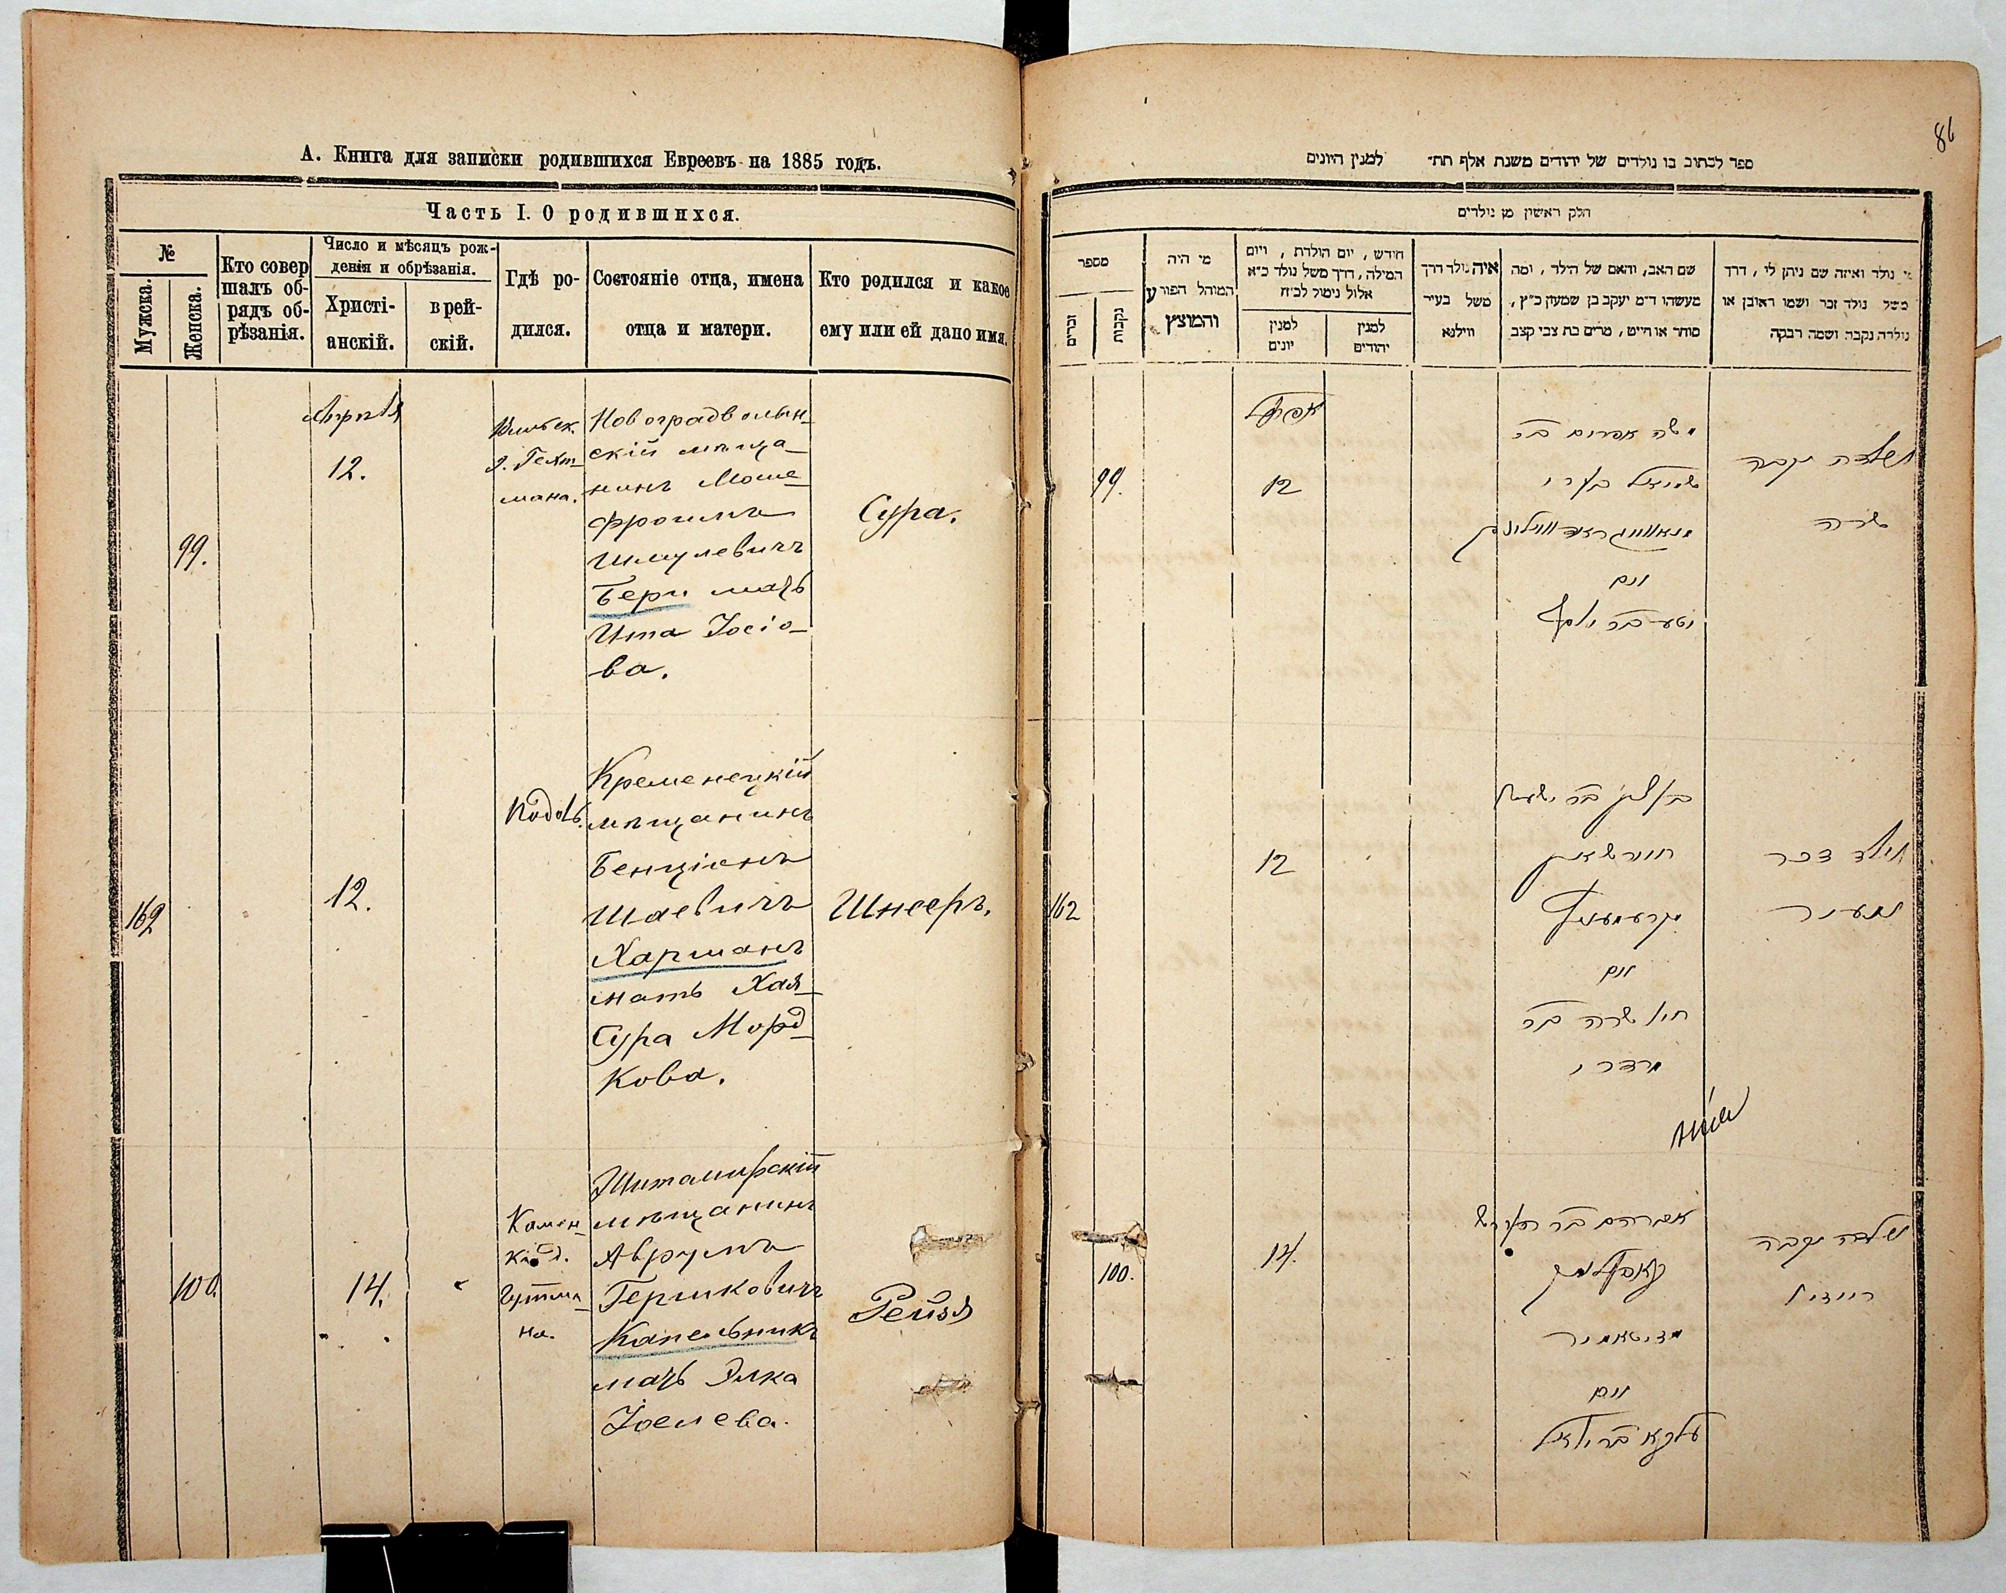 А. Книга для записки родившихся Евреевъ на 1885 годъ.
Часть I. О родившихся.
№
Мужска.
Женска.
Кто совер
шалъ об-
рядъ об-
рѣзанія.
Число и мѣсяцъ рож-
денія и обрѣзанія.
Христі-
анскій.
врей-
скій.
Гдѣ ро-
дился.
Состояніе отца, имена
отца и матери.
Кто родился и какое
ему или ей дано имя.
99.
Апрѣля
12.
мана.
Новоградволын-
скій мѣща-
нинъ Моше-
Фроимъ
Шмулевичъ
Бери мать
Ита Іосіо-
ва.
Сура.
162
12.
Подолъ.
Кременецкій
мѣщанинъ
Бенціонъ
Шаевичъ
Харманъ
мать Хая-
Сура Морд-
кова.
Шнееръ.
100.
14.
Камен-
Гутма-
на.
Житомирскій
мѣщанинъ
Аврумъ
Гершковичъ
Капельникъ
мать Элка
Іоелева.
Рейзя
86
ספר לכתוב בו נולדים של יהודים משנת אלף תת״ למנין היונים
חלק ראשון מן נולדים
מספר
זכרים
נקבות
מי היה
המוהל הפורע
והמוצץ
חודש, יום הולדת, ויום
המילה, דרך משל נולד כ״א
אלול נימול לכ״ח
למנין
יונים
למנין
יהודים
איה נולד דרך
משל בעיר
ווילנא
שם האב, והאם של הילד, ומה
מעשהו ד״מ יעקב בן שמעון כ״ץ,
סוחר או חייט, מרים בת צבי קצב
מי נולד ואיזה שם ניתן לו, דרך
משל נולד זכר ושמו ראובן או
נולדה נקבה ושמה רבקה
99.
אפריל
12
משה אפרים בר
נאוואגראדווילונסק
ואם
יטע בר יוסף
נולדה נקבה
שרה
162
12
בן ציון בר ישעיה
ואם
חיה שרה בר
מרדכי
נולד זכר
100.
14.
אברהם בר הירש
זיטאמיר
ואם
עלקא בר יואל
נולדה נקבה
רייזיל